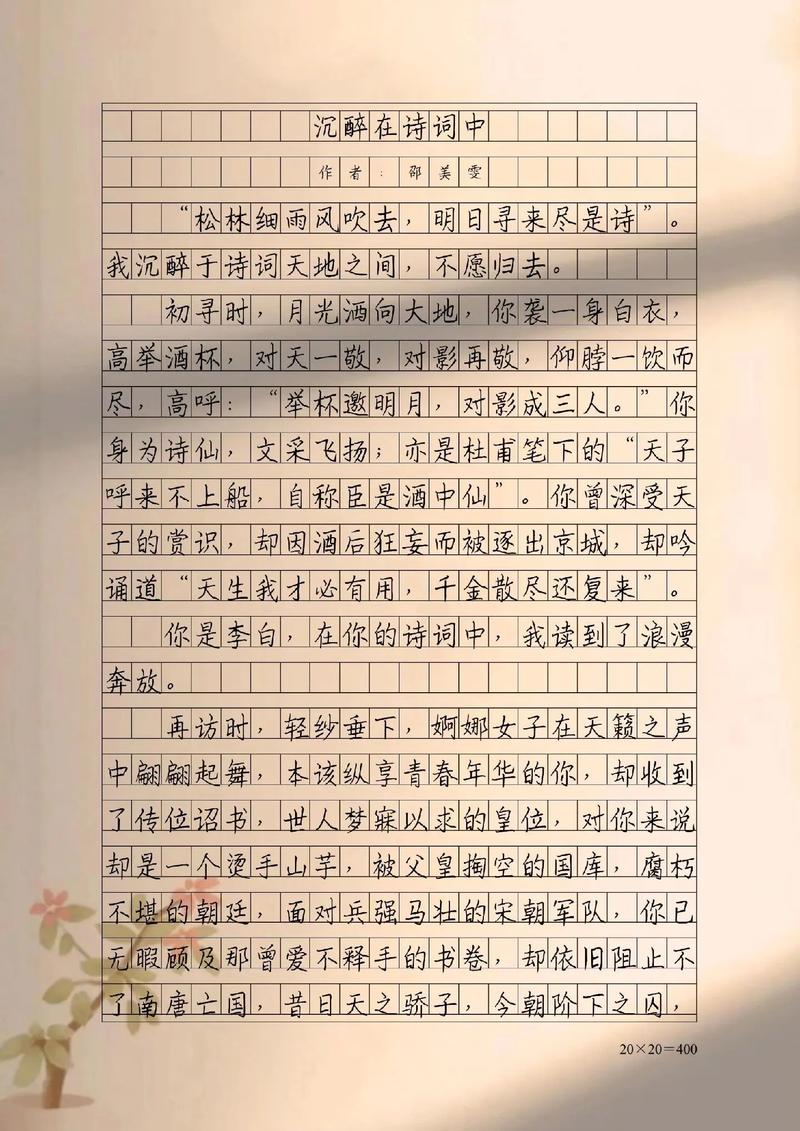 沉醉在诗词中
作者:邵美雯
“松林细雨风吹去，明日寻来尽是诗”。
我沉醉于诗词天地之间，不愿归去。
初寻时，月光洒向大地，你袭一身白衣，
高举酒杯，对天一敬，对影再敬，仰脖一饮而
尽，高呼：“举杯邀明月，对影成三人。”你
身为诗仙，文采飞扬；亦是杜甫笔下的“天子
呼来不上船，自称臣是酒中仙”。你曾深受天
子的赏识，却因酒后狂妄而被逐出京城，却吟
诵道“天生我才必有用，千金散尽还复来”。
你是李白，在你的诗词中，我读到了浪漫
奔放。
再访时，轻纱垂下，婀娜女子在天籁之声
中翩翩起舞，本该纵享青春年华的你，却收到
了传位诏书，世人梦寐以求的皇位，对你来说
却是一个烫手山芋，被父皇掏空的国库，腐朽
不堪的朝廷，面对兵强马壮的宋朝军队，你已
无暇顾及那曾爱不释手的书卷，却依旧阻止不
了南唐亡国，昔日天之骄子，今朝阶下之囚，
20×20=400